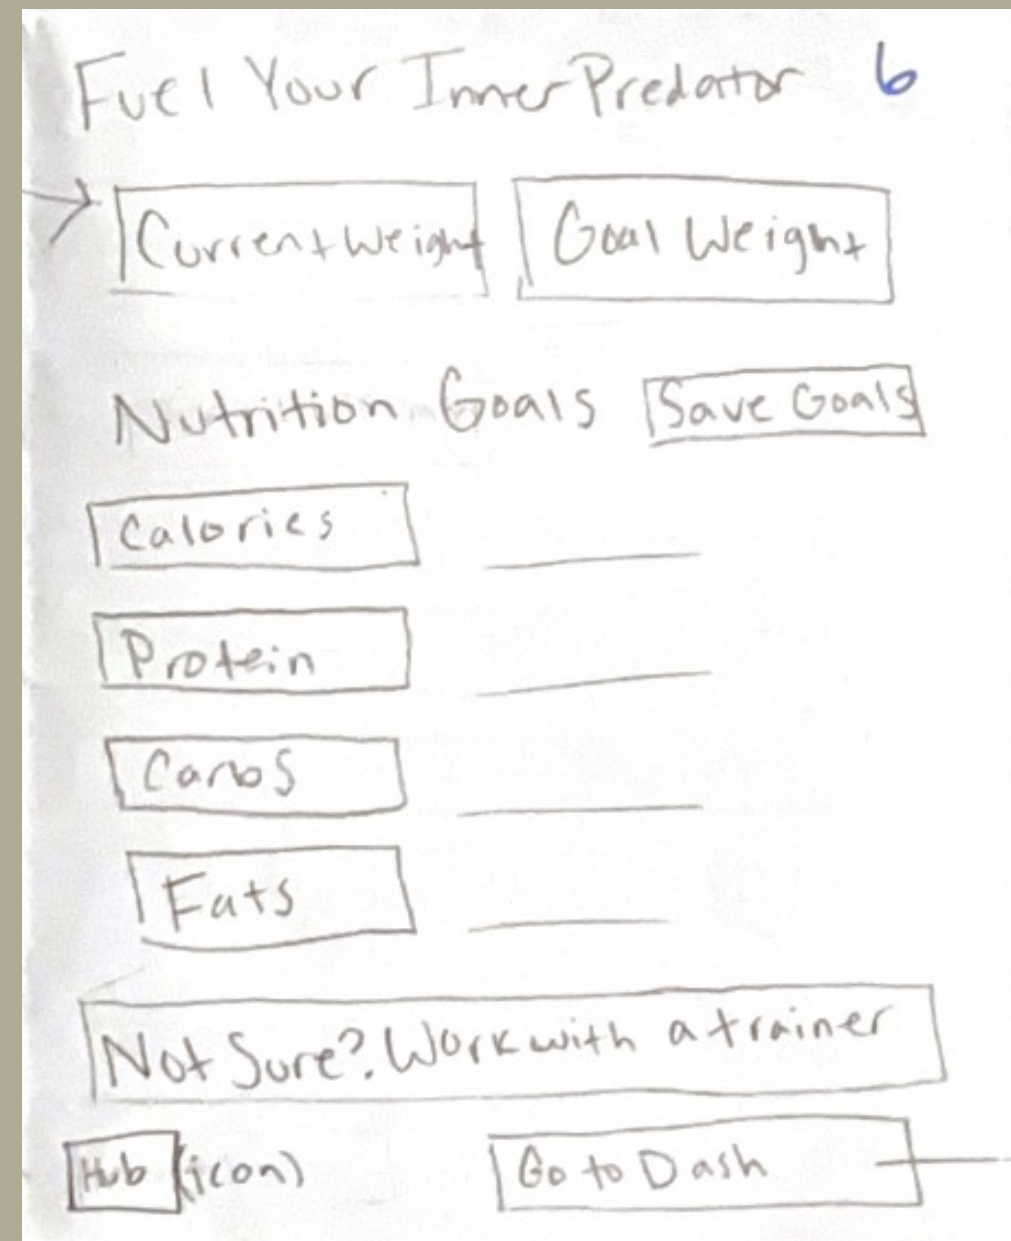 Fuel Your Inner Predator 6
Current Weight Goal Weight
Nutrition Goals Save Goals
Calories
Protein
Carbs
Fats
Not Sure? Work with a trainer
Hub (icon) Go to Dash